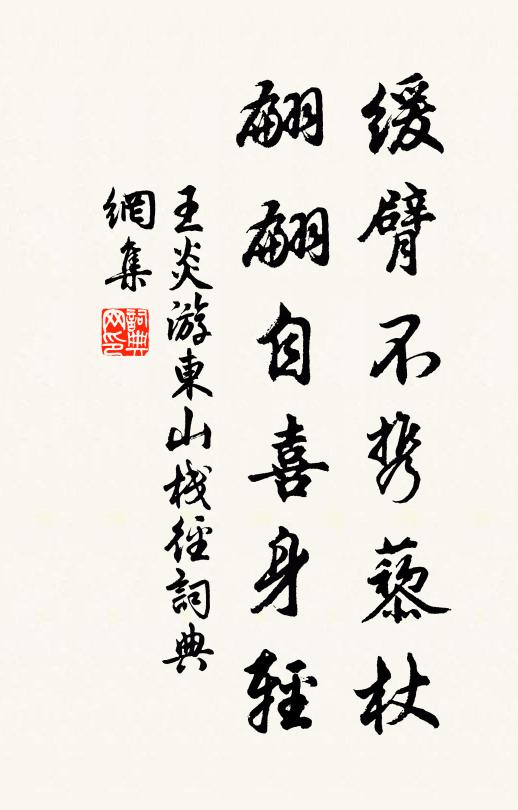 缓臂不携藜杖
翩翩自喜身輕
王炎游東山栈徑詞典
網集
詞典
网印